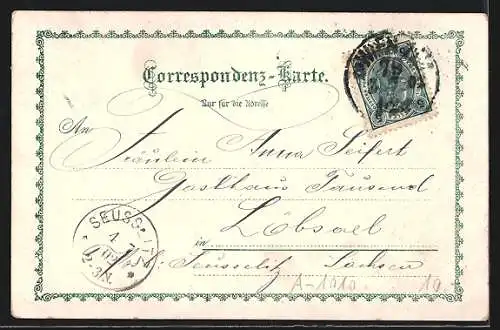 Correspondenz-Karte.
Nur für die Adresse
An
Fräulein Anna Seifert
Gasthaus Tausend
Löbsal
in
b. Seusslitz Sachsen
SEUSSLITZ
4. 7.
2-3N.
A-1010
10.-